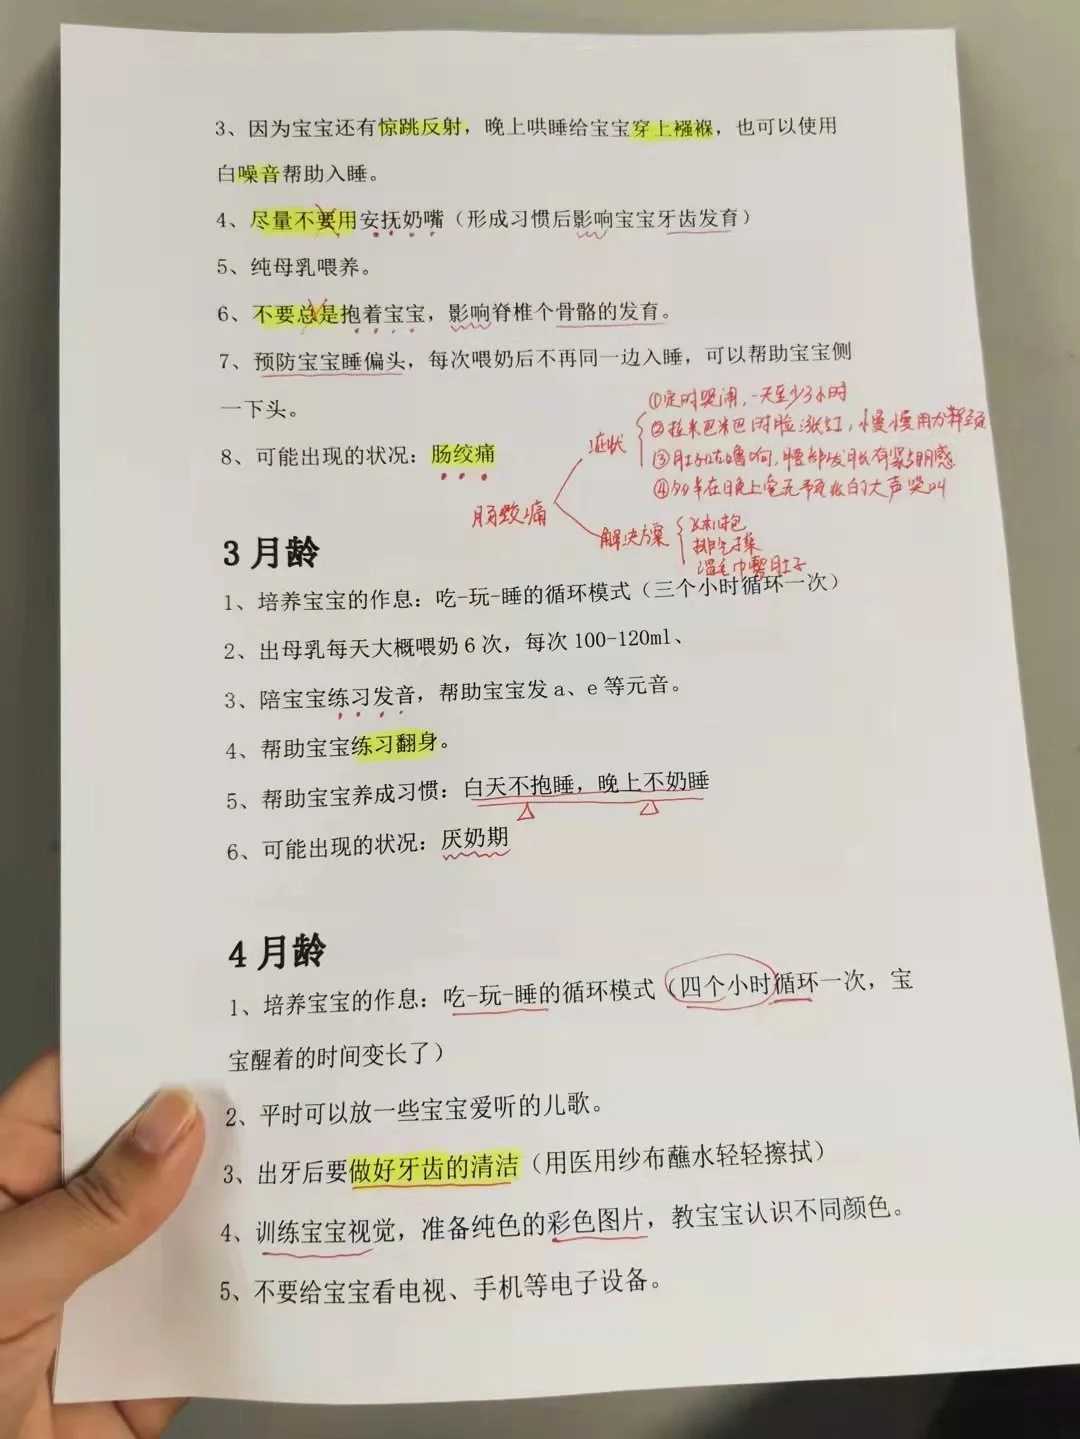 3、因为宝宝还有惊跳反射，晚上哄睡给宝宝穿上襁褓，也可以使用
白噪音帮助入睡。
4、尽量不要用安抚奶嘴（形成习惯后影响宝宝牙齿发育）
5、纯母乳喂养。
6、不要总是抱着宝宝，影响脊椎个骨骼的发育。
7、预防宝宝睡偏头，每次喂奶后不再同一边入睡，可以帮助宝宝侧
一下头。
8、可能出现的状况：肠绞痛
肠绞痛
症状
①定时哭闹，一天至少3小时
②拉粑粑时脸涨红，慢慢用力
③肚子咕噜响，腰部发胀有紧绷感
④多半在晚上毫无预兆的大声哭叫
解决方案
飞机抱
排气操
湿毛巾 肚子
3月龄
1、培养宝宝的作息：吃-玩-睡的循环模式（三个小时循环一次）
2、出母乳每天大概喂奶6次，每次100-120ml、
3、陪宝宝练习发音，帮助宝宝发a、e等元音。
4、帮助宝宝练习翻身。
5、帮助宝宝养成习惯：白天不抱睡，晚上不奶睡
6、可能出现的状况：厌奶期
4月龄
1、培养宝宝的作息：吃-玩-睡的循环模式（四个小时循环一次，宝
宝醒着的时间变长了）
2、平时可以放一些宝宝爱听的儿歌。
3、出牙后要做好牙齿的清洁（用医用纱布蘸水轻轻擦拭）
4、训练宝宝视觉，准备纯色的彩色图片，教宝宝认识不同颜色。
5、不要给宝宝看电视、手机等电子设备。